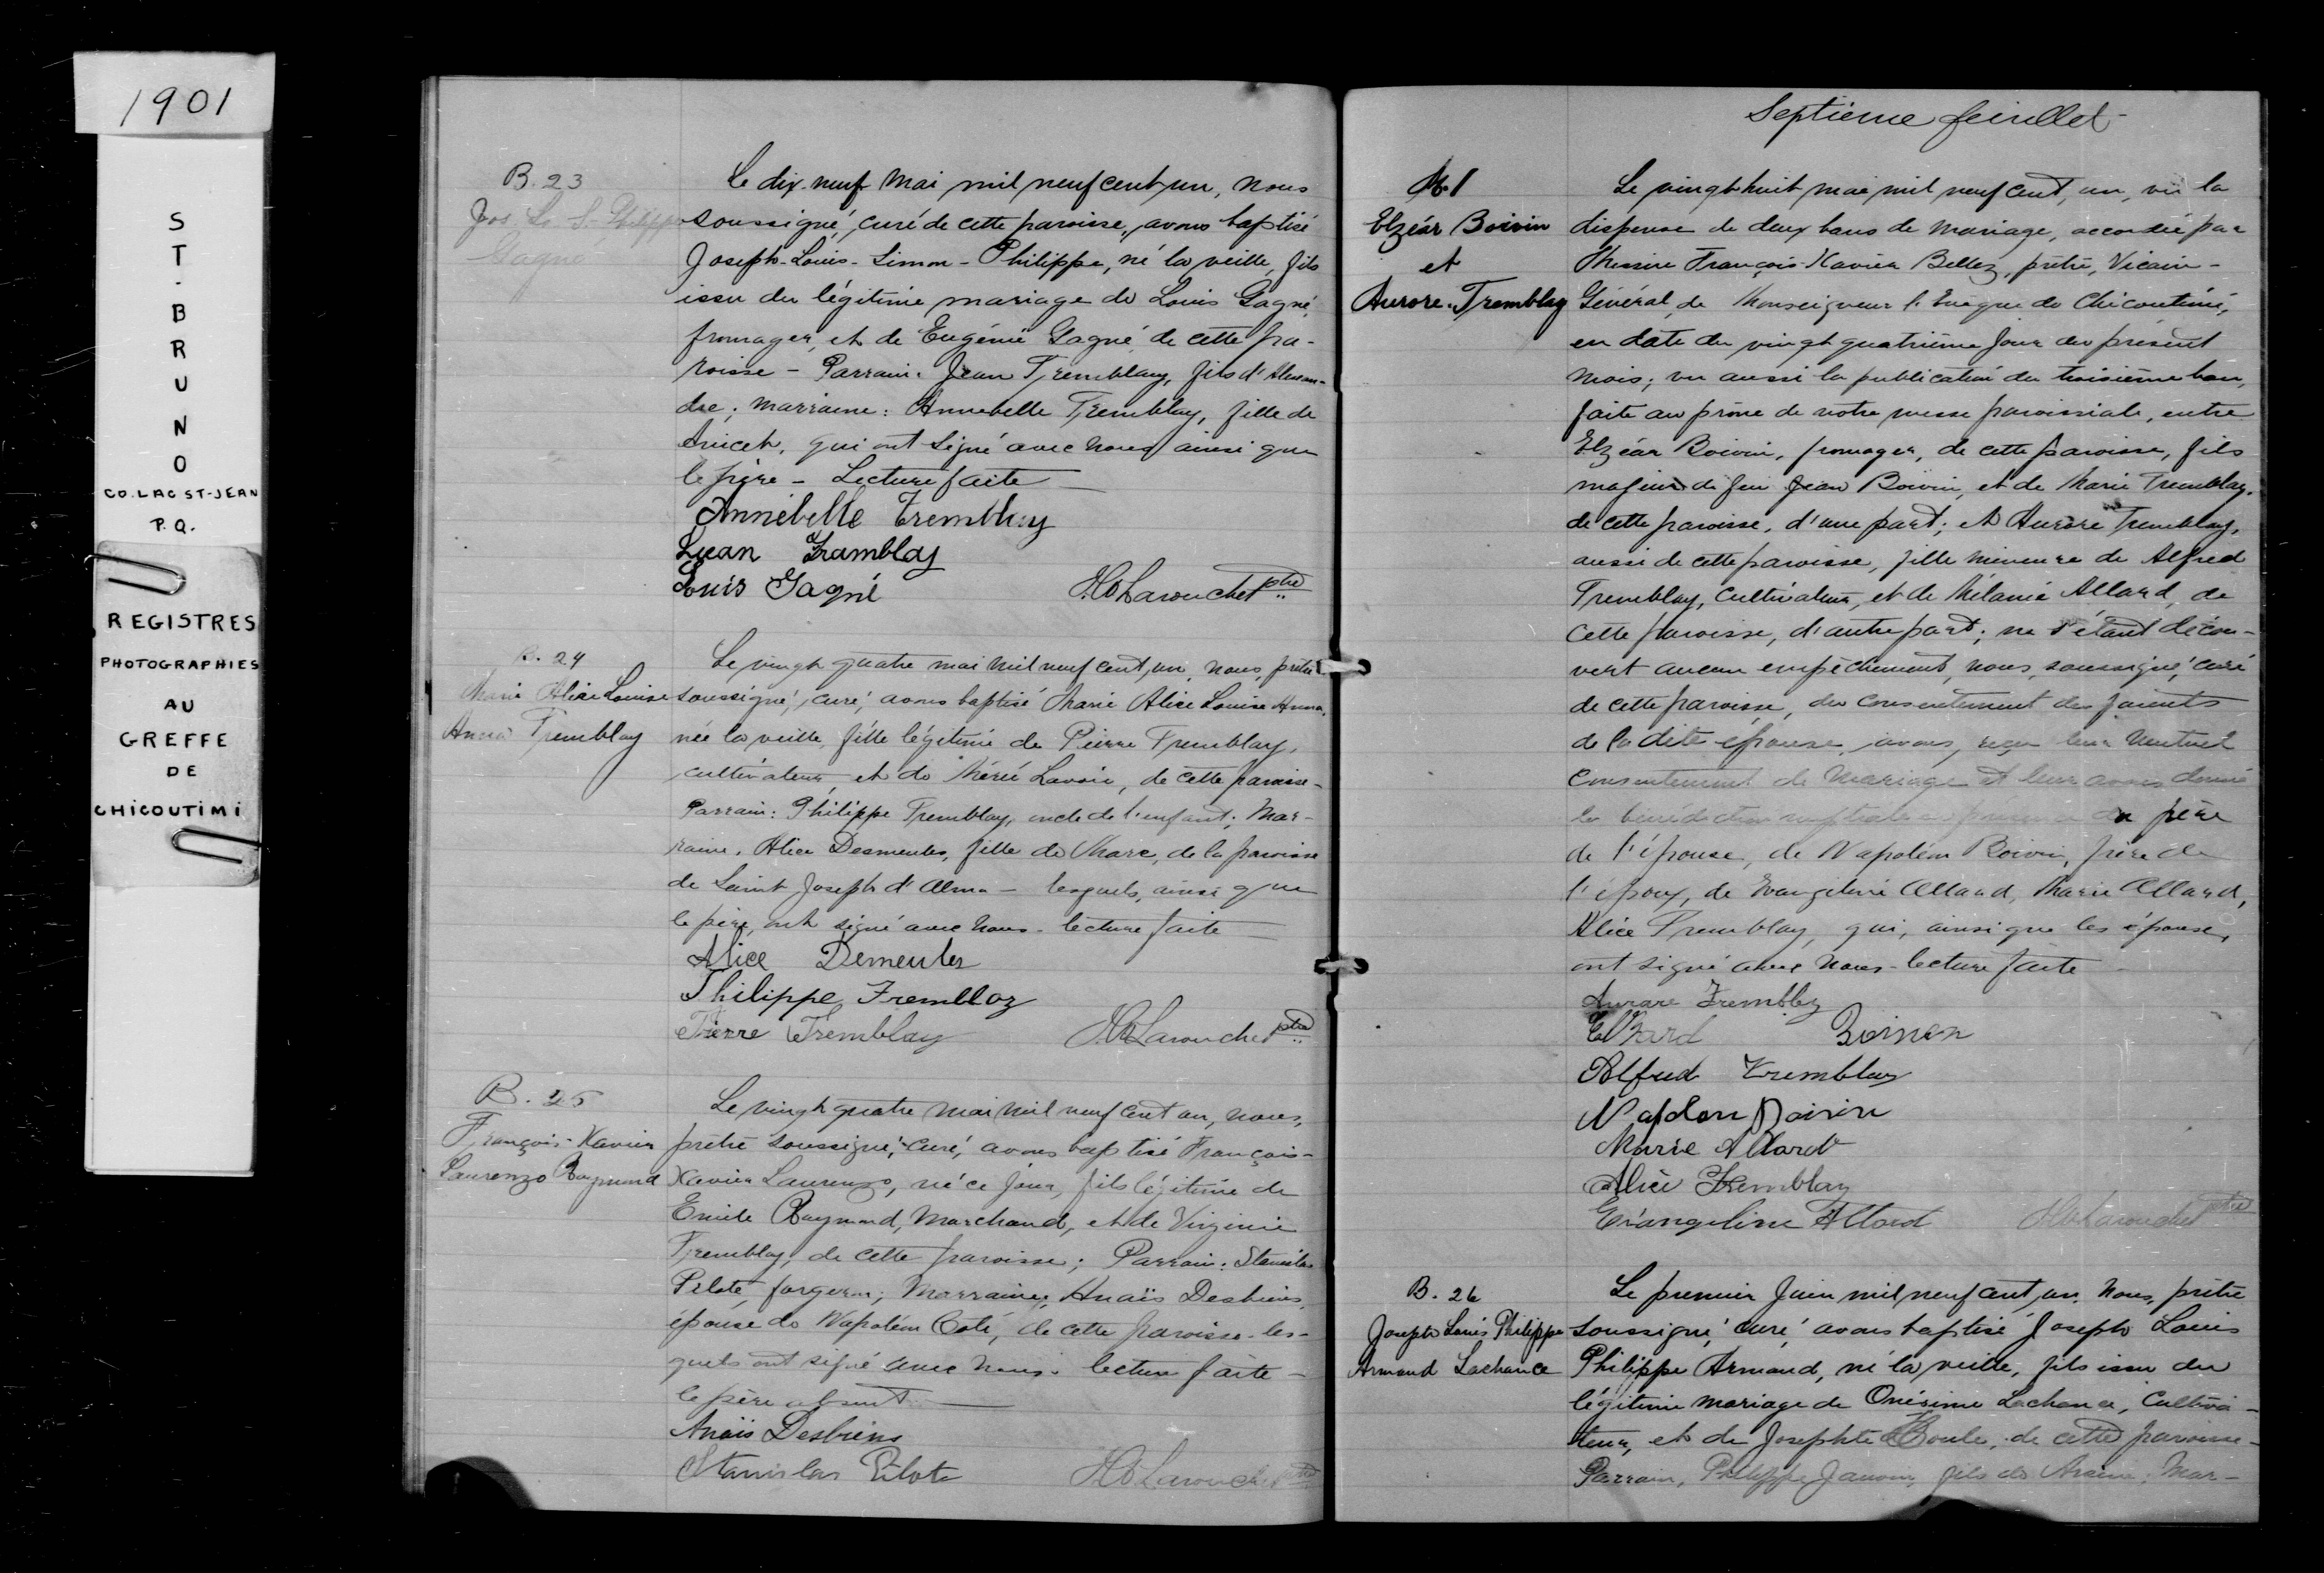 1901
ST-BRUNO
CO. LAC ST-JEAN
P.Q.
REGISTRES
PHOTOGRAPHIES
AU
GREFFE
DE
CHICOUTIMI
B. 23
Jos. Ls S. Philippe
Gagné
Le dix-neuf mai mil neuf cent un, nous
soussigné, curé de cette paroisse, avons baptisé
Joseph-Louis-Simon-Philippe, né la veille, fils
issu du légitime mariage de Louis Gagné,
fromager, et de Eugénie Gagné de cette pa-
roisse - Parrain: Jean Tremblay, fils d'Alexan-
dre; marraine: Annabelle Tremblay, fille de
Anicet, qui ont signé avec nous ainsi que
le père - Lecture faite
Annebelle Tremblay
Jean Tramblay
Louis Gagné
Larouche ptre
B. 24
Marie Alice Louise
Anna Tremblay
Le vingt quatre mai mil neuf cent un, nous, prêtre
soussigné, curé, avons baptisé Marie Alice Louise Anna,
née la veille, fille légitime de Pierre Tremblay,
cultivateur, et de Lavoie, de cette paroisse-
Parrain: Philippe Tremblay, oncle de l'enfant; Mar-
raine, Alice Desmeules, fille de Marc, de la paroisse
de Saint Joseph d'Alma - lesquels, ainsi que
le père, ont signé avec nous - lecture faite
Alice Demeules
Philippe Tremblay
Pierre Tremblay
Larouche ptre
B. 25
François-Xavier
Laurenzo Raymond
Le vingt quatre mai mil neuf cent un, nous,
prêtre soussigné, curé, avons baptisé François-
Xavier Laurenzo, né ce jour, fils légitime de
Emile Raymond, Marchand, et de Virginie
Tremblay, de cette paroisse; Parrain: Stanislas
Pilote, forgeron; Marraine, Anaïs Desbiens,
épouse de Napoléon Coté, de cette paroisse - les-
quels ont signé avec nous. lecture faite -
le père absent
Anaïs Desbiens
Stanislas Pilote
Larouche ptre
Septième feuillet
M. 1
Elzéar Boivin
et
Aurore Tremblay
Le vingt huit mai mil neuf cent, un, vu la
dispense de deux bans de mariage, accordée par
Messire François-Xavier Belley, prêtre, Vicaire-
Général, de Monseigneur l'Evêque de Chicoutimi,
en date du vingt quatrième jour du présent
mois; vu aussi la publication du troisième ban,
faite au prône de notre messe paroissiale, entre
Elzéar Boivin, fromager, de cette paroisse, fils
majeur de feu Jean Boivin, et de Marie Tremblay,
de cette paroisse, d'une part; et Aurore Tremblay,
aussi de cette paroisse, fille mineure de Alfred
Tremblay, Cultivateur, et de Mélanie Allard, de
cette paroisse, d'autre part; ne s'étant décou-
vert aucun empêchement, nous, soussigné, curé
de cette paroisse, du consentement des parents
de la dite épouse, avons, reçu leur mutuel
consentement de mariage et leur avons donné
la bénédiction nuptiale en présence du père
de l'épouse, de Napoléon Boivin, frère de
l'époux, de Evangeline Allard, Marie Allard,
Alice Tremblay, qui, ainsi que les épouse,
ont signé avec nous - lecture faite -
Aurore Trembley
Boivin
Alfred Tremblay
Napoleon Boivin
Marie Allard
Alice Tremblay
Evangeline Allard
Larouche ptre
B. 26
Joseph Louis Philippe
Armand Lachance
Le premier Juin mil neuf cent, un. Nous, prêtre
soussigné, curé, avons baptisé Joseph Louis
Philippe Armand, né la veille, fils issu du
légitime mariage de Onésime Lachance, Cultiva-
teur, et de Josephte de cette paroisse-
Parrain, Philippe fils de Mar-